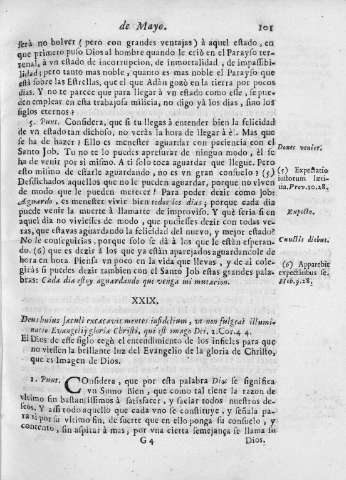 de Mayo. 101
será no bolver (pero con grandes ventajas) à aquel estado, en
que primero puso Dios al hombre quando le criò en el Parayso ter-
renal, à vn estado de incorrupcion, de inmortalidad, de impassibi-
lidad; pero tanto mas noble, quanto es mas noble el Parayso que
està sobre las Estrellas, que el que Adàn gozò en la tierra por pocos
dias. Y no te parece que para llegar à vn estado como este, se pue-
den emplear en esta trabajosa milicia, no digo yà los dias, sino los
siglos eternos?
5. Punt. Considera, que si tu llegas à entender bien la felicidad
de vn estado tan dichoso, no veràs la hora de llegar à èl. Mas que
se ha de hazer? Ello es menester aguardar con paciencia con el
Santo Job. Tu no te lo puedes apresurar de ningun modo, èl se
ha de venir por si mismo. A ti solo toca aguardar que llegue. Pero
esto mismo de estarle aguardando, no es vn gran consuelo? (5)
Desdichados aquellos que no le pueden aguardar, porque no viven
de modo que le pueden merecer! Para poder dezir como Job:
Aguardo, es menester vivir bien todos los dias; porque cada dia
puede venir la muerte à llamarte de improviso. Y què seria si en
aquel dia no vivieses de modo, que pudieses dezir con todas ve-
ras, que estavas aguardando la felicidad del nuevo, y mejor estado?
No le conseguirias, porque solo se dà à los que le estàn esperan-
do. (6) que es dezir à los que yà estàn aparejados aguardandole de
hora en hora. Piensa vn poco en la vida que llevas, y de ai cole-
giràs si puedes dezir tambien con el Santo Job estas grandes pala-
bras: Cada dia estoy aguardando que venga mi mutacion.
Donec veniet.
(5) Expectatio
iustorum læti-
tia. Prov. 10. 28.
Expecto.
Cunctis diebus.
(6) Apparebit
expectantibus se.
Heb. 9. 28.
XXIX.
Deus huius sæculi excæcavit mentes infidelium, ut non fulgeat illumi-
natio Evangelij gloriæ Christi, qui est imago Dei. 2. Cor. 4. 4.
El Dios de este siglo cegò el entendimiento de los infieles para que
no viessen la brillante luz del Evangelio de la gloria de Christo,
que es Imagen de Dios.
1. Punt. Considera, que por esta palabra Dios se significa
vn Sumo Bien, que como tal tiene la razon de
vltimo fin bastantissimo à satisfacer, y saciar todos nuestros de-
seos. Y assi todo aquello que cada vno se constituye, y señala pa-
ra si por su vltimo fin, de suerte que en ello ponga su consuelo, y
contento, sin aspirar à mas, por vna cierta semejança se llama su
G 4 Dios.